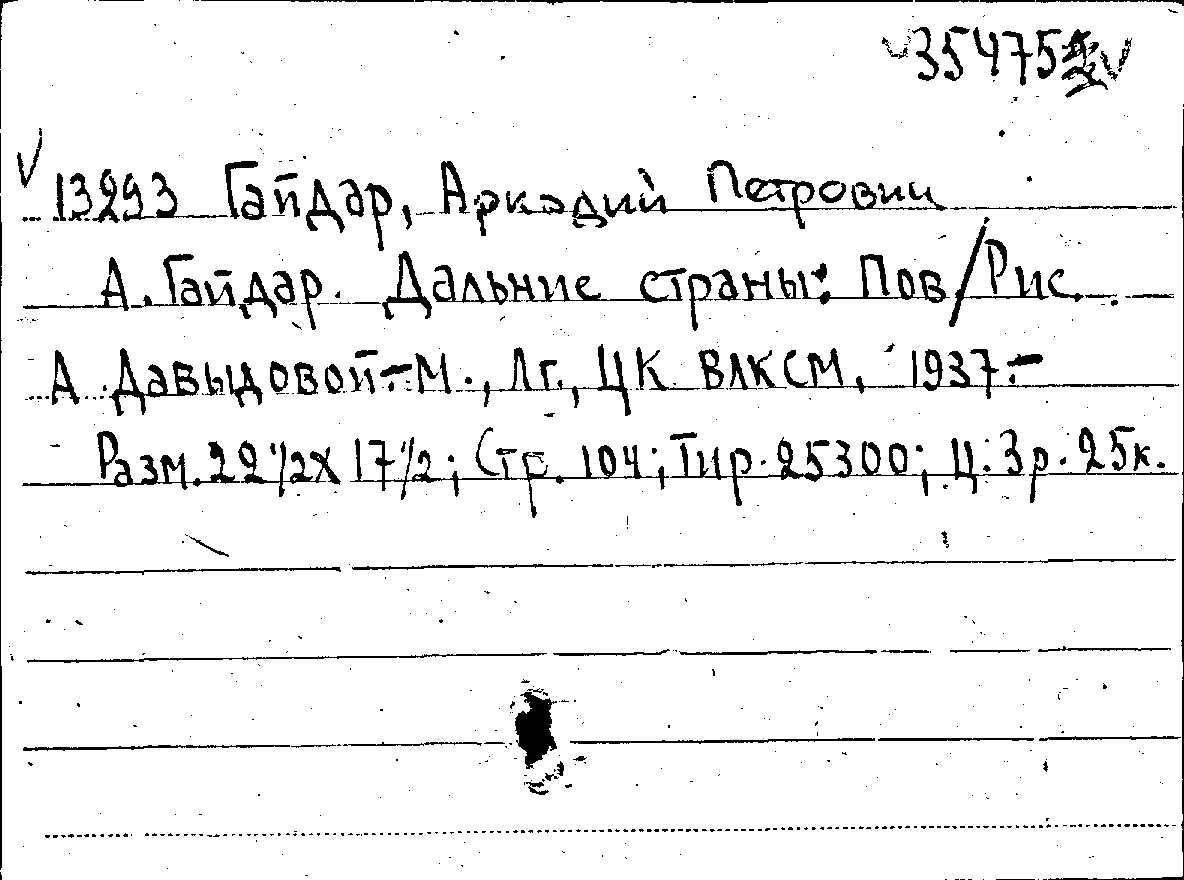 35475
13293 Гайдар, Аркадий Петрович
А. Гайдар. Дальние страны: Пов/Рис.
А Давыдовой.-М., Лг., ЦК ВЛКСМ, 1937.-
Разм. 22 1/2 х 17 1/2; Стр. 104; Тир. 25300; Ц. 3р. 25к.